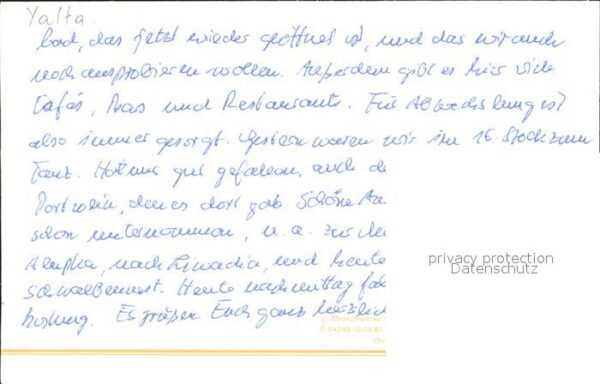 Yalta
bad, das jetzt wieder geöffnet ist, und das wir auch
noch ausprobieren wollen. Außerdem gibt es hier viele
Cafés, Bars und Restaurants. Für Abwechslung ist
also immer gesorgt. Gestern waren wir im 16. Stock zum
Tanz. Hat uns gut gefallen, auch de
Portwein, den es dort gab. Schöne Au
schon unternommen, u. a. zur
Alupka, nach Livadia, und heute
Schwalbennest. Heute nachmittag
Es grüßen Euch ganz herzlich
privacy protection
Datenschutz